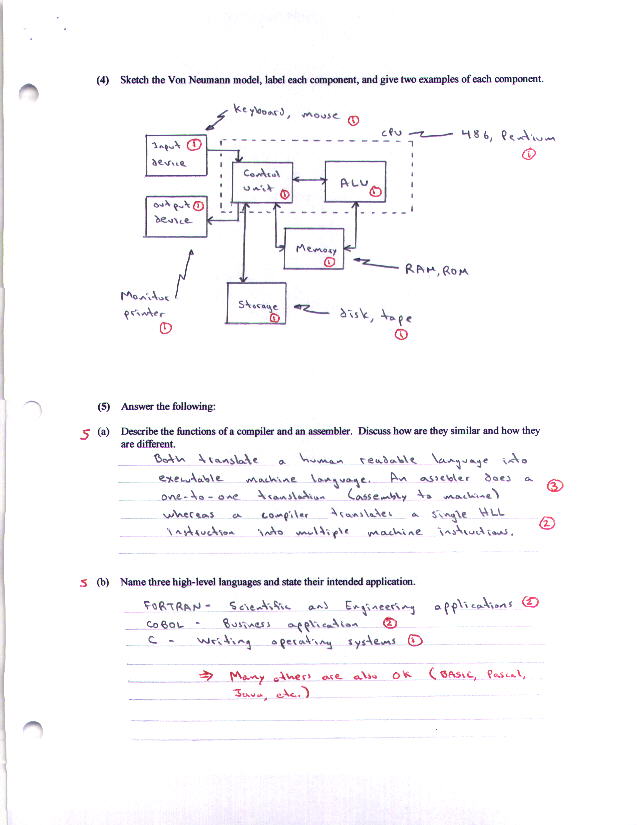 (4) Sketch the Von Neumann model, label each component, and give two examples of each component.
Keyboard, mouse ①
CPU
486, Pentium
①
Input ①
device
Control
unit ①
ALU ①
output ①
device
Memory
①
RAM, ROM
Monitor
printer
①
Storage
①
disk, tape
①
(5) Answer the following:
5 (a) Describe the functions of a compiler and an assembler. Discuss how are they similar and how they
are different.
Both translate a human readable language into
executable machine language. An assebler does a
③
one-to-one translation (assembly to machine)
whereas a compiler translates a single HLL
②
instruction into multiple machine instructions.
5 (b) Name three high-level languages and state their intended application.
FORTRAN - Scientific and Engineering applications ②
COBOL - Business application ②
C - Writing operating systems ①
⇒ Many others are also OK (BASIC, Pascal,
Java, etc.)